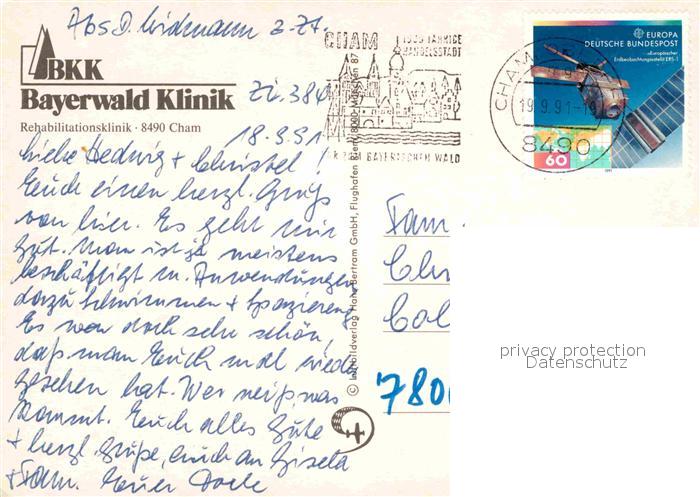 Abs. D. Widmann z. Zt.
BKK
Bayerwald Klinik
Zi. 384
Rehabilitationsklinik · 8490 Cham
18.9.91
Liebe Hedwig + Christel!
Euch einen herzl. Gruß
von hier. Es geht mir
gut. Man ist ja meistens
beschäftigt m. Anwendungen
dazu Schwimmen + Spazieren
Es war doch sehr schön,
daß man Euch mal wieder
gesehen hat. Wer weiß, was
kommt. Euch alles Gute
+ herzl. Grüße, auch an Gisela
+ Fam. Euer
CHAM
HANDELSSTADT
BAYERISCHEN WALD
CHAM
19.9.91-19
8490
EUROPA
DEUTSCHE BUNDESPOST
»Europäischer
Erdbeobachtungssatellit ERS-1
60
1991
© Luftbildverlag Hans Bertram GmbH, Flughafen Riem, 8000 München 87
Fam
780
privacy protection
Datenschutz